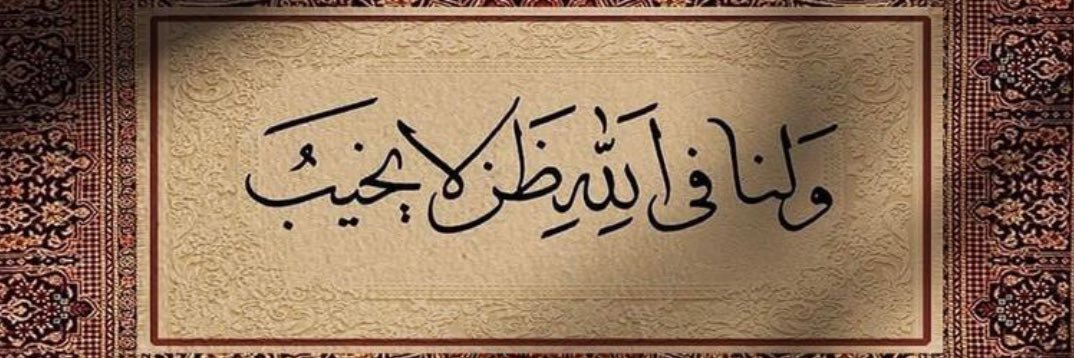 ولنا في الله ظن لا يخيب